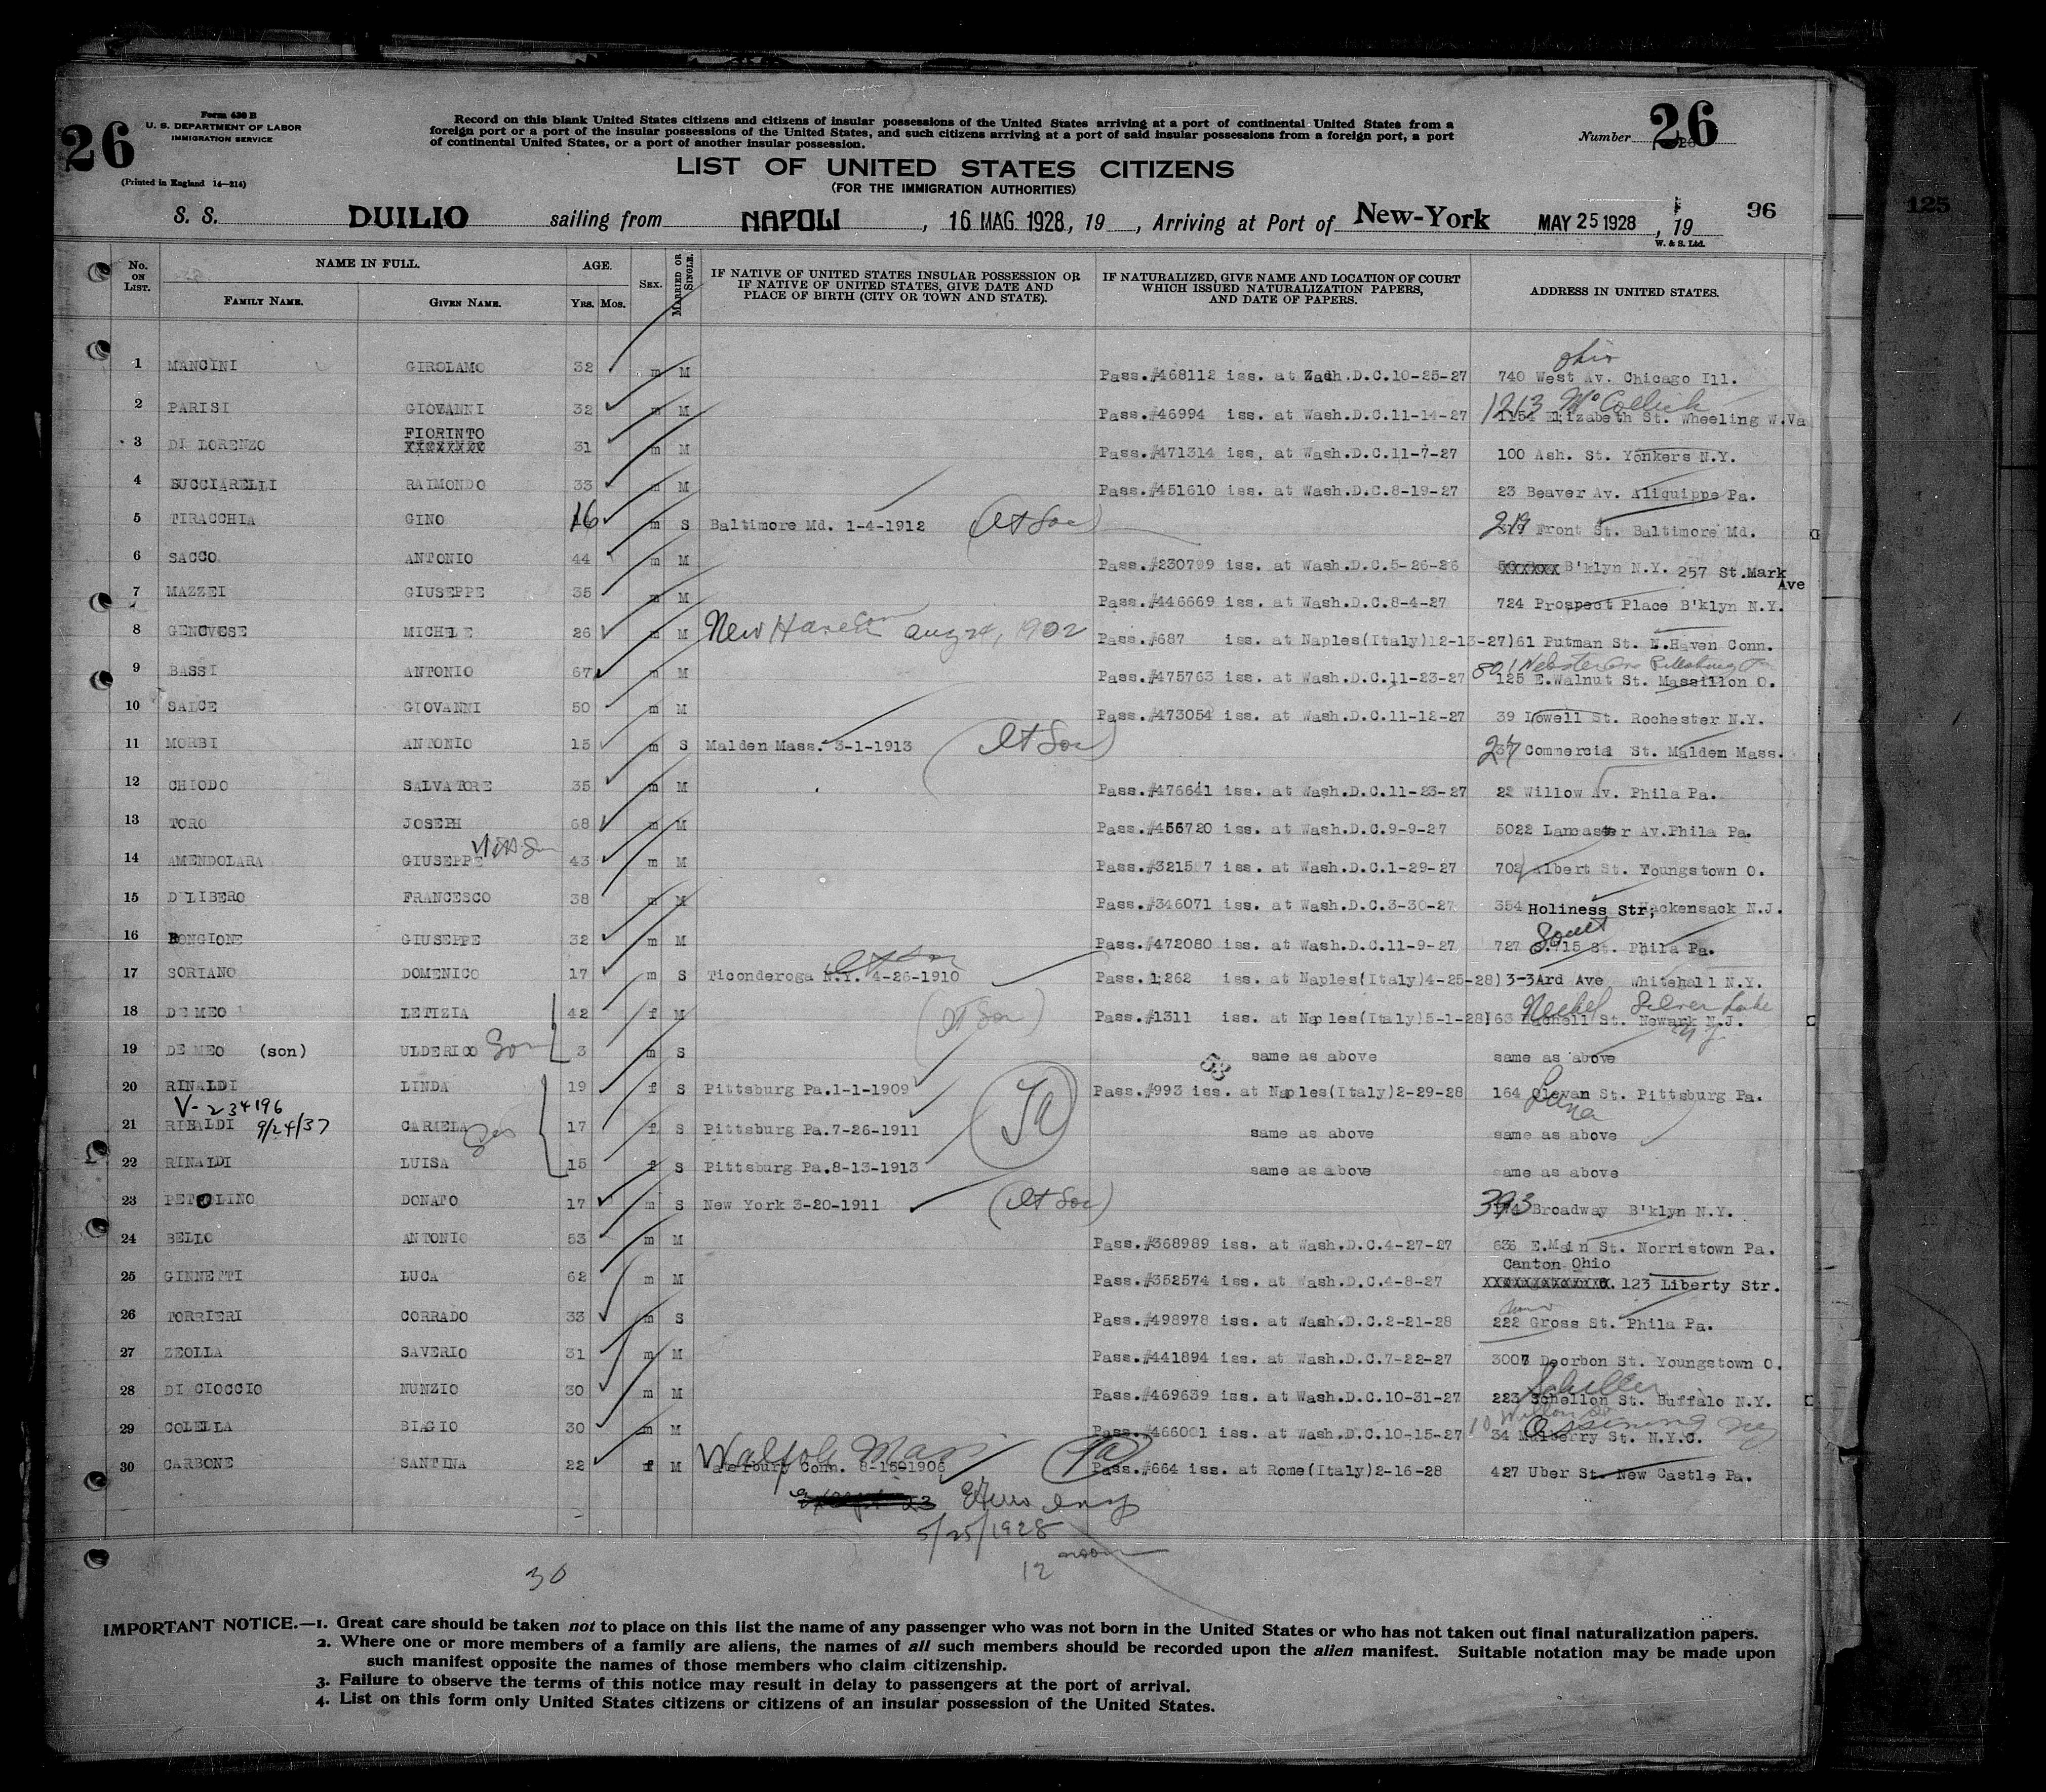 26
Form 630 B
U. S. DEPARTMENT OF LABOR
IMMIGRATION SERVICE
(Printed in England 14—214)
Record on this blank United States citizens and citizens of insular possessions of the United States arriving at a port of continental United States from a
foreign port or a port of the insular possessions of the United States, and such citizens arriving at a port of said insular possessions from a foreign port, a port
of continental United States, or a port of another insular possession.
Number 26
LIST OF UNITED STATES CITIZENS
(FOR THE IMMIGRATION AUTHORITIES)
S. S. DUILIO sailing from NAPOLI, 16 MAG 1928, 19 , Arriving at Port of New-York MAY 25 1928, 19
96
W. & S. Ltd.
125
No. ON LIST. NAME IN FULL. FAMILY NAME. GIVEN NAME. AGE. YRS. MOS. SEX. MARRIED OR SINGLE. IF NATIVE OF UNITED STATES INSULAR POSSESSION OR IF NATIVE OF UNITED STATES, GIVE DATE AND PLACE OF BIRTH (CITY OR TOWN AND STATE). IF NATURALIZED, GIVE NAME AND LOCATION OF COURT WHICH ISSUED NATURALIZATION PAPERS, AND DATE OF PAPERS. ADDRESS IN UNITED STATES.
Ohio
1 MANCINI GIROLAMO 32 m M Pass.#468112 iss. at Wash.D.C.10-25-27 740 West Av. Chicago Ill.
1213 McCollick
2 PARISI GIOVANNI 32 m M Pass.#46994 iss. at Wash.D.C.11-14-27 1154 Elizabeth St. Wheeling W.Va
FIORINTO
3 DI LORENZO XXXXXXXX 31 m M Pass.#471314 iss, at Wash.D.C.11-7-27 100 Ash. St. Yonkers N.Y.
4 BUCCIARELLI RAIMONDO 33 m M Pass.#451610 iss. at Wash.D.C.8-19-27 23 Beaver Av. Aliquippa Pa.
5 TIRACCHIA GINO 16 m S Baltimore Md. 1-4-1912 219 Front St. Baltimore Md.
6 SACCO ANTONIO 44 m M Pass.#230799 iss. at Wash.D.C.5-26-26 XXXXXX B'klyn N.Y. 257 St.Mark Ave
7 MAZZEI GIUSEPPE 35 m M Pass.#446669 iss. at Wash.D.C.8-4-27 724 Prospect Place B'klyn N.Y.
8 GENOVESE MICHELE 26 m M New Haven Con Aug 24, 1902 Pass.#687 iss. at Naples(Italy)12-13-27)61 Putman St. N.Haven Conn.
801 Webster Av Pittsburg Pa
9 BASSI ANTONIO 67 m M Pass.#475763 iss. at Wash.D.C.11-23-27 125 E.Walnut St. Massillon O.
10 SALCE GIOVANNI 50 m M Pass.#473054 iss. at Wash.D.C.11-12-27 39 Lowell St. Rochester N.Y.
11 MORBI ANTONIO 15 m S Malden Mass. 3-1-1913 237 Commercial St. Malden Mass.
12 CHIODO SALVATORE 35 m M Pass.#476641 iss. at Wash.D.C.11-23-27 22 Willow Av. Phila Pa.
13 TORO JOSEPH 68 m M Pass.#456720 iss. at Wash.D.C.9-9-27 5022 Lancaster Av.Phila Pa.
14 AMENDOLARA GIUSEPPE 43 m M Pass.#321587 iss. at Wash.D.C.1-29-27 702 Albert St. Youngstown O.
15 DELIBERO FRANCESCO 38 m M Pass.#346071 iss. at Wash.D.C.3-30-27 354 Holiness Str, Hackensack N.J.
South
16 BONGIONE GIUSEPPE 32 m M Pass.#472080 iss. at Wash.D.C.11-9-27 727 S.715 St. Phila Pa.
17 SORIANO DOMENICO 17 m S Ticonderoga N.Y. 4-26-1910 Pass.1262 iss. at Naples(Italy)4-25-28) 3-3Ard Ave Whitehall N.Y.
Silver Lake
18 DE MEO LETIZIA 42 f M Pass.#1311 iss. at Naples(Italy)5-1-28)63 St. Newark N.J.
19 DE MEO (son) ULDERICO 3 m S same as above same as above
20 RINALDI LINDA 19 f S Pittsburg Pa.1-1-1909 Pass.#993 iss. at Naples(Italy)2-29-28 164 St. Pittsburg Pa.
V-234196
21 RIBALDI 9/24/37 CARMELA 17 f S Pittsburg Pa.7-26-1911 same as above same as above
22 RINALDI LUISA 15 f S Pittsburg Pa.8-13-1913 same as above same as above
23 PETOLINO DONATO 17 m S New York 3-20-1911 393 Broadway B'klyn N.Y.
24 BELLO ANTONIO 53 m M Pass.#368989 iss. at Wash.D.C.4-27-27 636 E.Main St. Norristown Pa.
Canton Ohio
25 GINNETTI LUCA 62 m M Pass.#352574 iss. at Wash.D.C.4-8-27 XXXXXXXXXXXXX. 123 Liberty Str.
26 TORRIERI CORRADO 33 m S Pass.#498978 iss. at Wash.D.C.2-21-28 222 Gross St. Phila Pa.
27 ZEOLLA SAVERIO 31 m M Pass.#441894 iss. at Wash.D.C.7-22-27 3007 Deorbon St. Youngstown O.
Schiller
28 DI CIOCCIO NUNZIO 30 m M Pass.#469639 iss. at Wash.D.C.10-31-27 223 Schellon St. Buffalo N.Y.
10 Willow St Ossining NY
29 COLELLA BIAGIO 30 m M Pass.#466001 iss. at Wash.D.C.10-15-27 34 Mulberry St. N.Y.C.
Walpole Mass
30 CARBONE SANTINA 22 f M Conn. 8-15-1906 Pass.#664 iss. at Rome(Italy)2-16-28 427 Uber St. New Castle Pa.
5/25/1928
12 noon
30
IMPORTANT NOTICE.—1. Great care should be taken not to place on this list the name of any passenger who was not born in the United States or who has not taken out final naturalization papers.
2. Where one or more members of a family are aliens, the names of all such members should be recorded upon the alien manifest. Suitable notation may be made upon
such manifest opposite the names of those members who claim citizenship.
3. Failure to observe the terms of this notice may result in delay to passengers at the port of arrival.
4. List on this form only United States citizens or citizens of an insular possession of the United States.